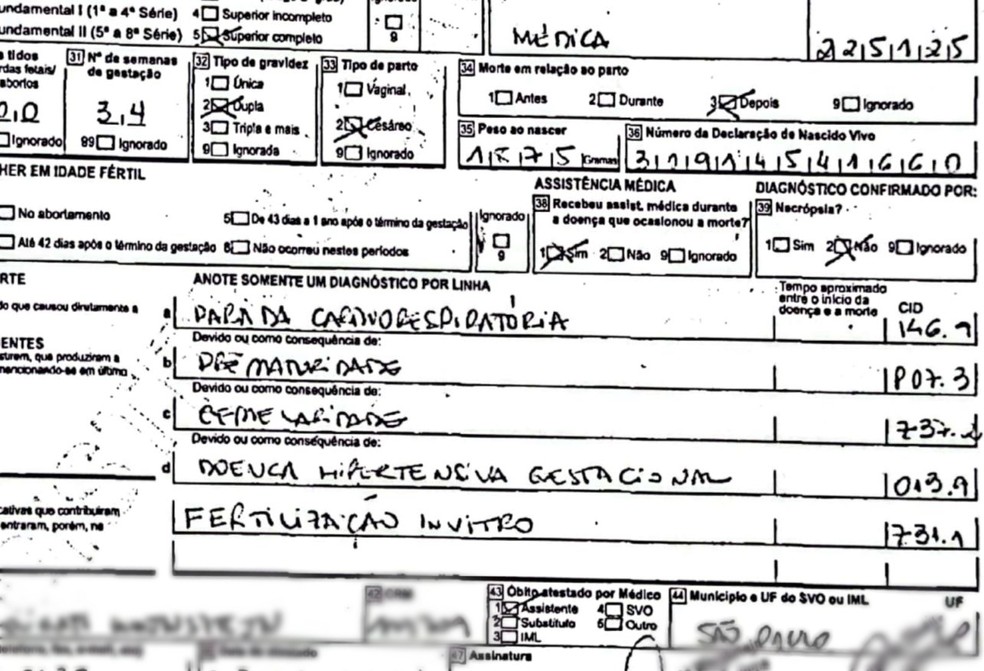 undamental I (1ª a 4ª Série) 4 Superior incompleto
undamental II (5ª a 8ª Série) 5 Superior completo 9
MÉDICA 225125
s tidos 31 Nº de semanas 32 Tipo de gravidez 33 Tipo de parto 34 Morte em relação ao parto
rdas fetais/ de gestação 1 Única 1 Vaginal
abortos 2 Dupla 1 Antes 2 Durante 3 Depois 9 Ignorado
0,0 3,4 3 Tripla e mais 2 Cesáreo 35 Peso ao nascer 36 Número da Declaração de Nascido Vivo
Ignorado 99 Ignorado 9 Ignorada 9 Ignorado Gramas
HER EM IDADE FÉRTIL ASSISTÊNCIA MÉDICA DIAGNÓSTICO CONFIRMADO POR:
38 Recebeu assist. médica durante 39 Necrópsia?
No abortamento 5 De 43 dias a 1 ano após o término da gestação Ignorado a doença que ocasionou a morte?
Até 42 dias após o término da gestação 8 Não ocorreu nestes períodos 9 1 Sim 2 Não 9 Ignorado 1 Sim 2 Não 9 Ignorado
RTE ANOTE SOMENTE UM DIAGNÓSTICO POR LINHA Tempo aproximado
entre o início da
doença e a morte CID
do que causou diretamente a a PARADA CARDIORESPIRATÓRIA I46.9
ENTES Devido ou como consequência de:
stirem, que produziram a b PREMATURIDADE P07.3
mencionando-se em último Devido ou como consequência de:
c GEMELARIDADE
Devido ou como consequência de:
d DOENCA HIPERTENSIVA GESTACIONAL 013.9
cativas que contribuíram FERTILIZAÇÃO INVITRO Z31.1
entraram, porém, na
43 Óbito atestado por Médico 44 Município e UF do SVO ou IML UF
1 Assistente 4 SVO
2 Substituto 5 Outro SÃO PAULO
3 IML
47 Assinatura